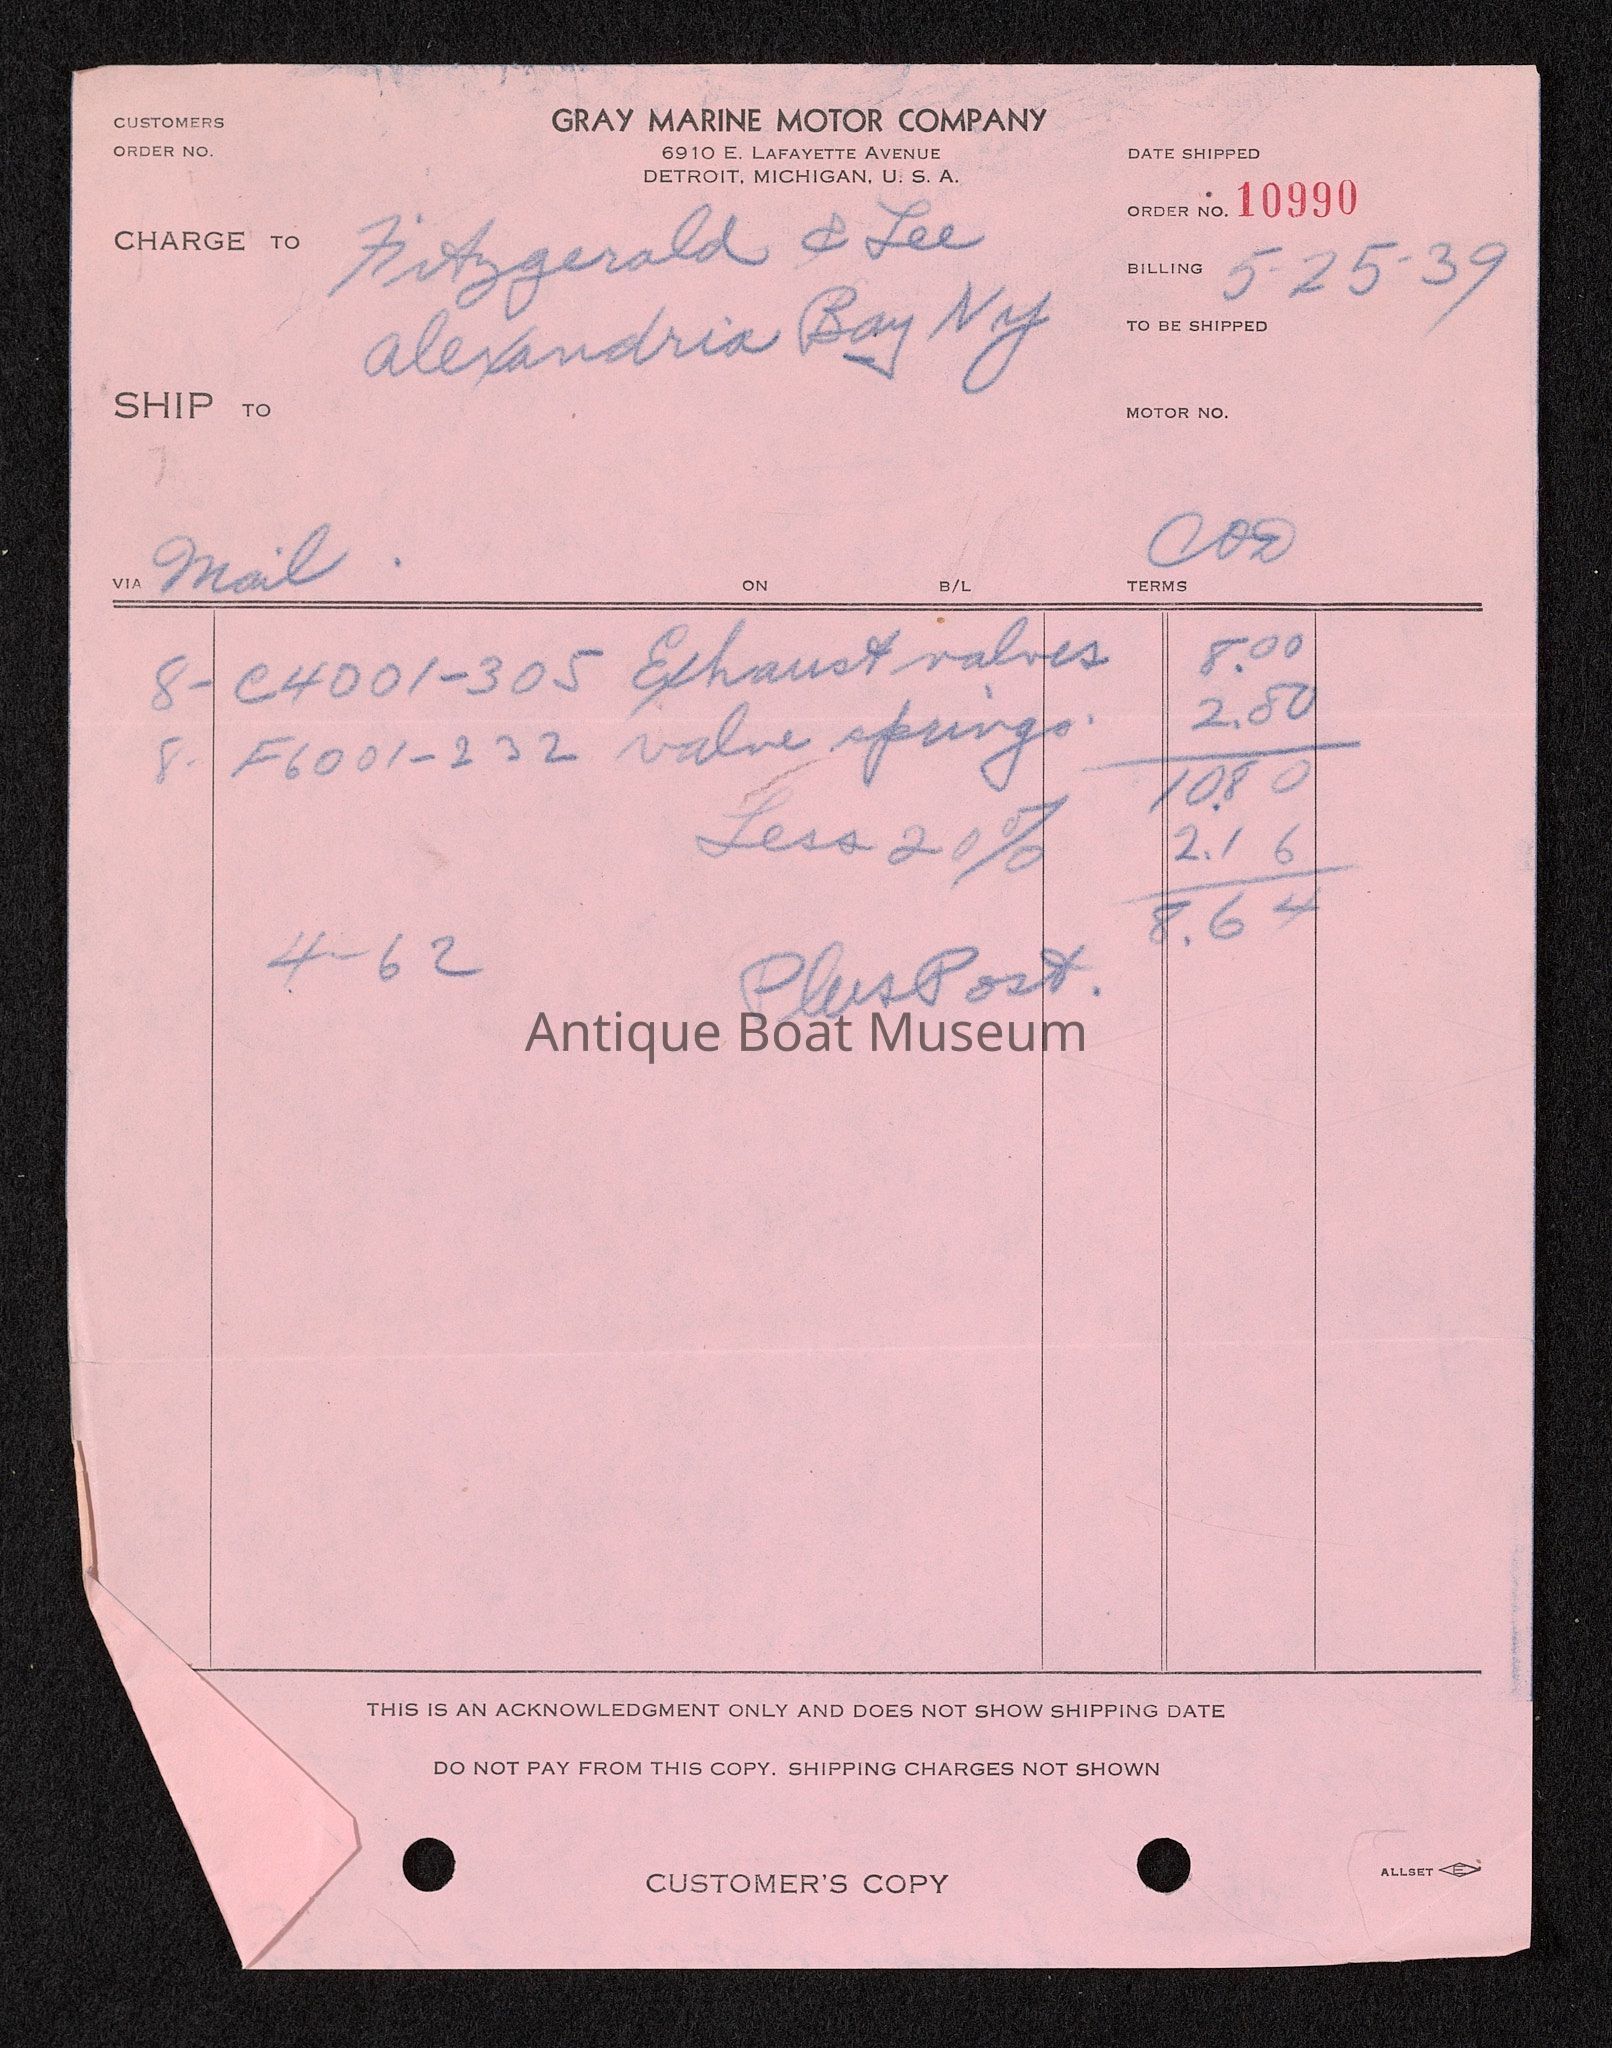 GRAY MARINE MOTOR COMPANY
6910 E. LAFAYETTE AVENUE
DETROIT, MICHIGAN, U. S. A.
CUSTOMERS
ORDER NO.
DATE SHIPPED
ORDER NO. 10990
CHARGE TO Fitzgerald & Lee
BILLING 5-25-39
Alexandria Bay Ny
TO BE SHIPPED
SHIP TO
MOTOR NO.
VIA Mail . ON B/L TERMS COD
8- C4001-305 Exhaust valves 8.00
8- F6001-232 valve springs. 2.80
10.80
Less 20% 2.16
8.64
4-62 Plus Post.
Antique Boat Museum
THIS IS AN ACKNOWLEDGMENT ONLY AND DOES NOT SHOW SHIPPING DATE
DO NOT PAY FROM THIS COPY. SHIPPING CHARGES NOT SHOWN
CUSTOMER'S COPY
ALLSET E